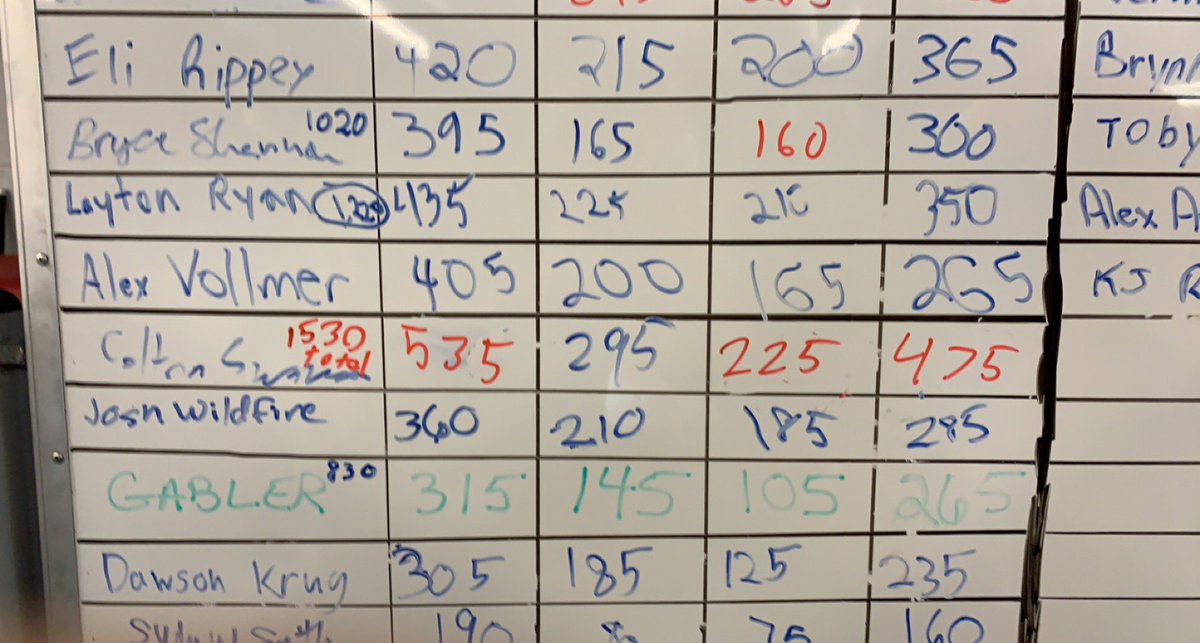 Eli Rippey 420 215 200 365 Brynn
Bryce Shannon 1020 395 165 160 300 Toby
Layton Ryan 435 225 210 350 Alex A
Alex Vollmer 405 200 165 265 KJ R
Colton 1530 total 535 295 225 475
Josh Wildfire 360 210 185 285
GABLER 830 315 145 105 265
Dawson Krug 305 185 125 235
190 75 160